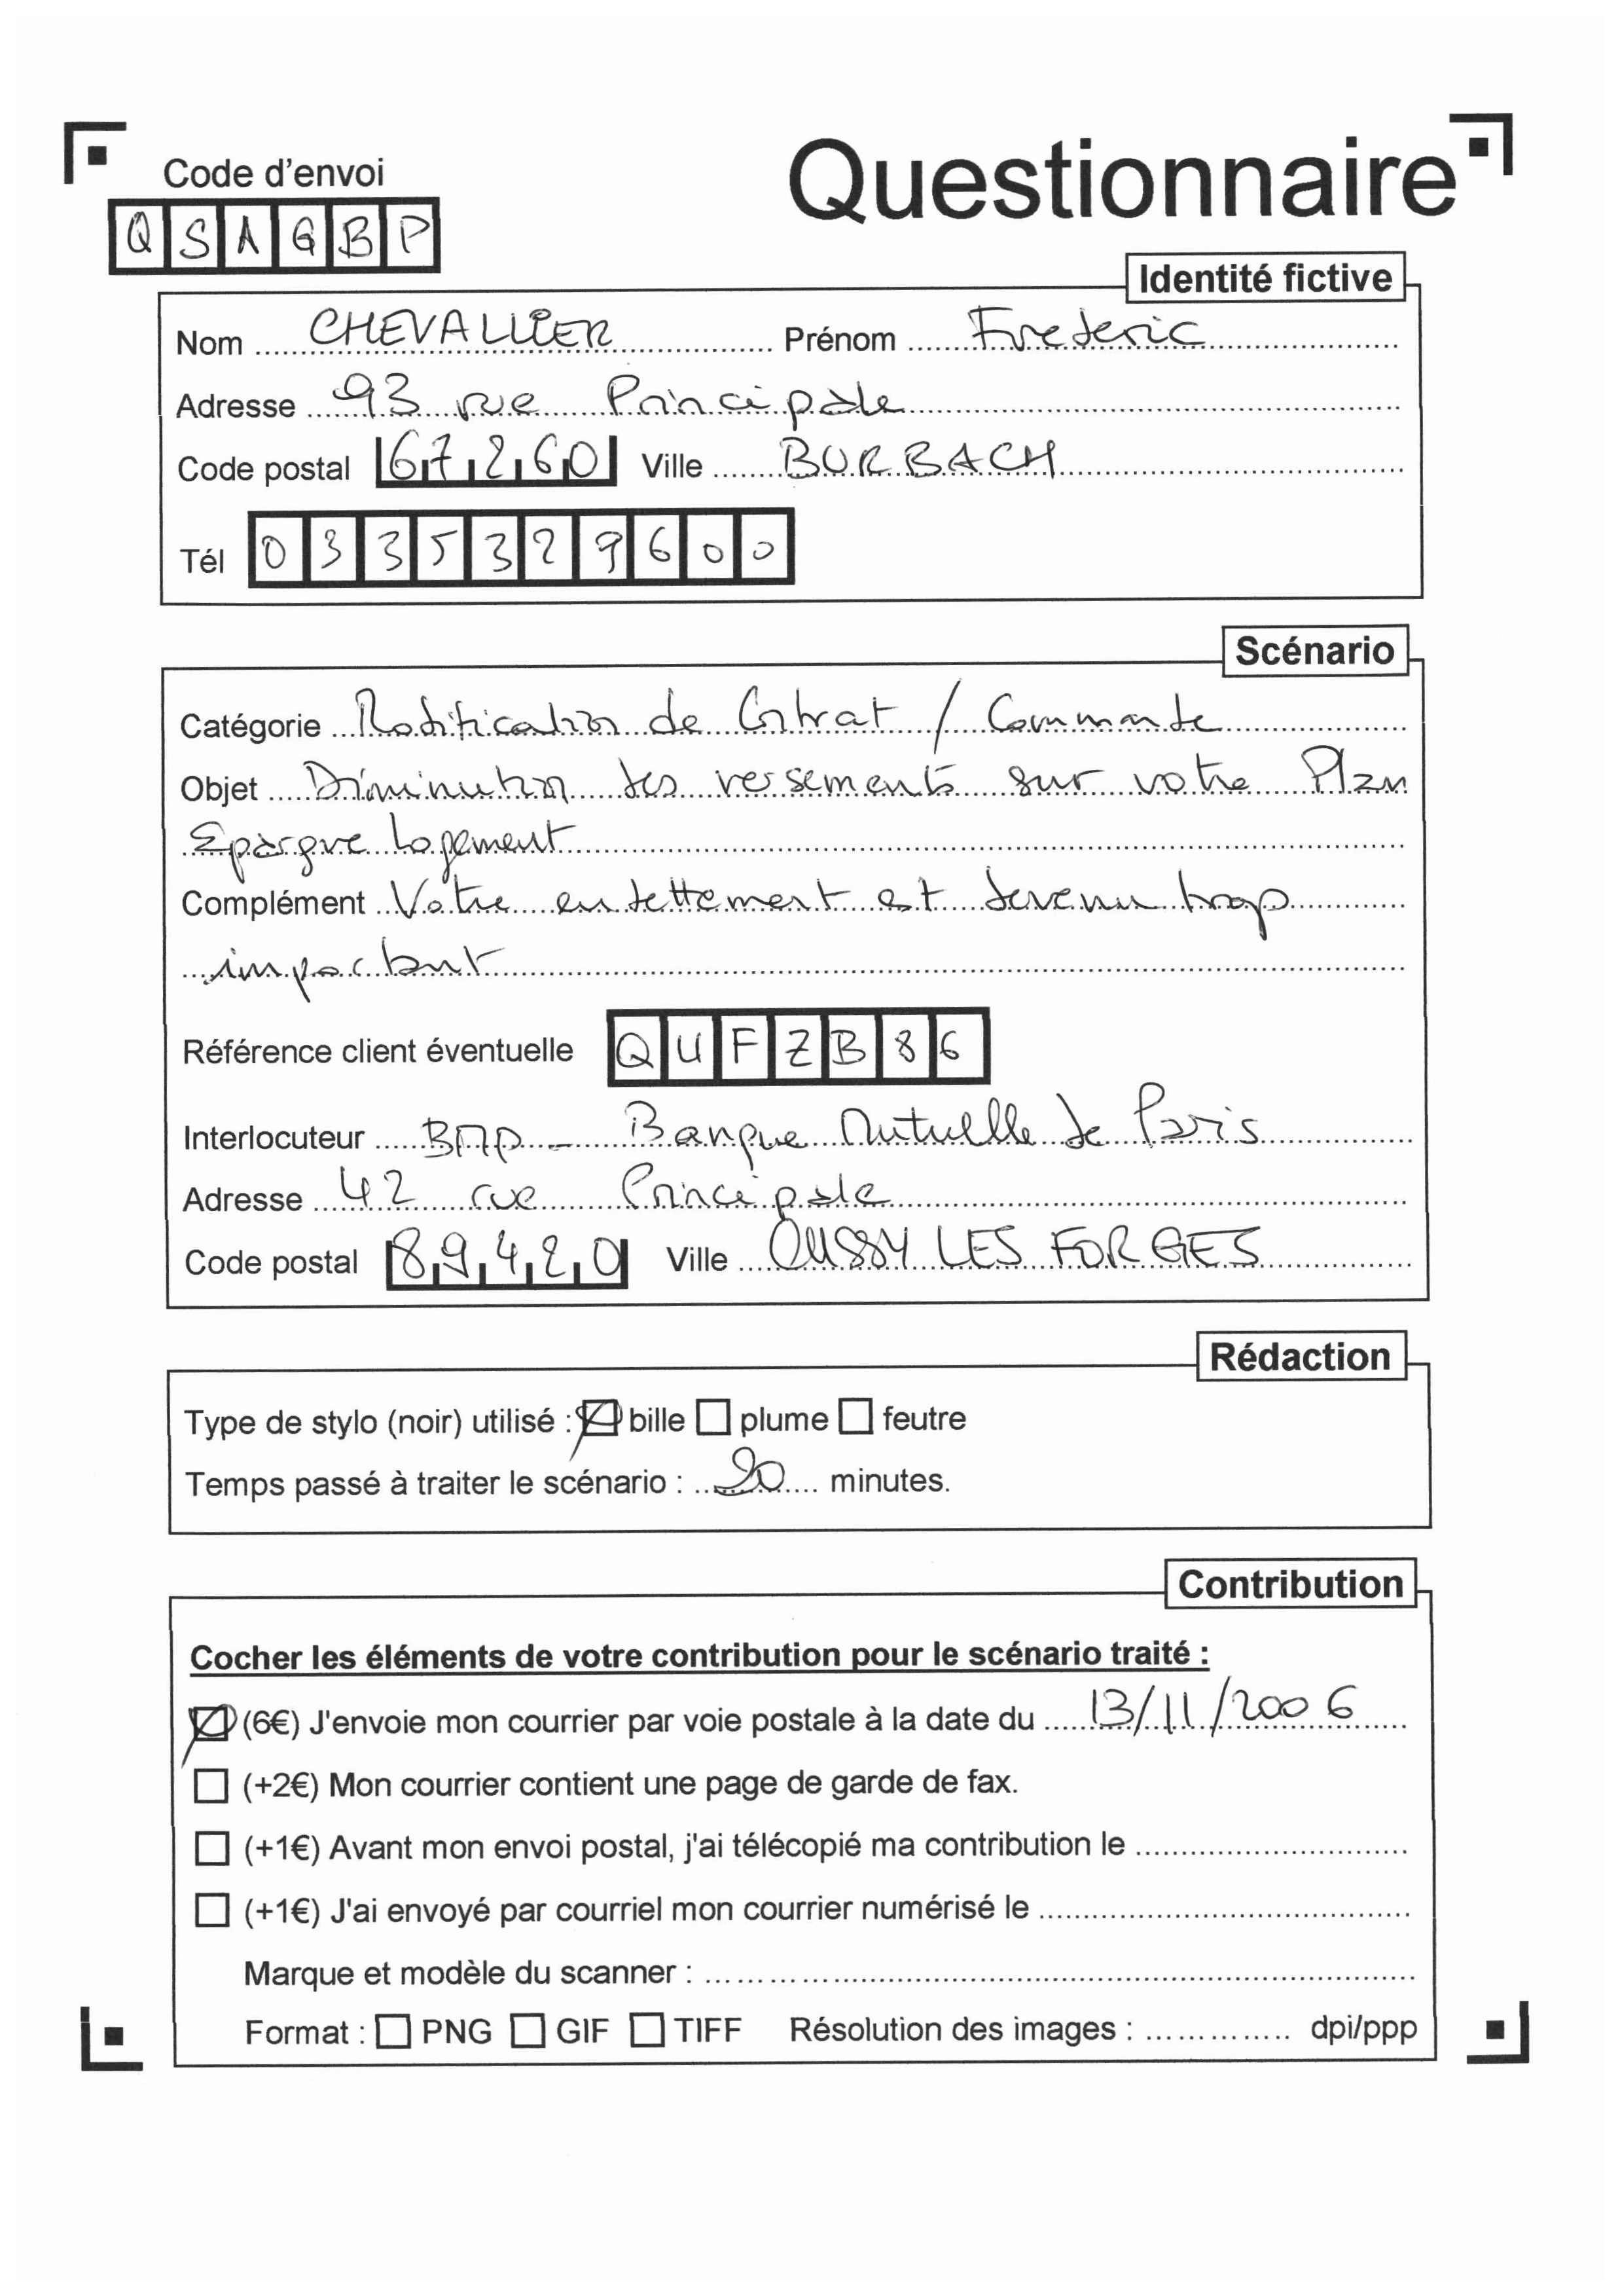 Questionnaire
Code d'envoi
QSAGBP
Identité fictive
Nom CHEVALLIER Prénom Frederic
Adresse 93 rue Principale
Code postal 67260 Ville BURBACH
Tél 0335329600
Scénario
Catégorie Modification de Contrat / Commande
Objet Diminution des versements sur votre Plan
Epargne Logement
Complément Votre endettement est devenu trop
important
Référence client éventuelle QUFZB86
Interlocuteur BMP - Banque Mutuelle de Paris
Adresse 42 rue Principale
Code postal 89420 Ville LES FORGES
Rédaction
Type de stylo (noir) utilisé : bille plume feutre
Temps passé à traiter le scénario : minutes.
Contribution
Cocher les éléments de votre contribution pour le scénario traité :
(6€) J'envoie mon courrier par voie postale à la date du 13/11/2006
(+2€) Mon courrier contient une page de garde de fax.
(+1€) Avant mon envoi postal, j'ai télécopié ma contribution le
(+1€) J'ai envoyé par courriel mon courrier numérisé le
Marque et modèle du scanner :
Format : PNG GIF TIFF Résolution des images : dpi/ppp